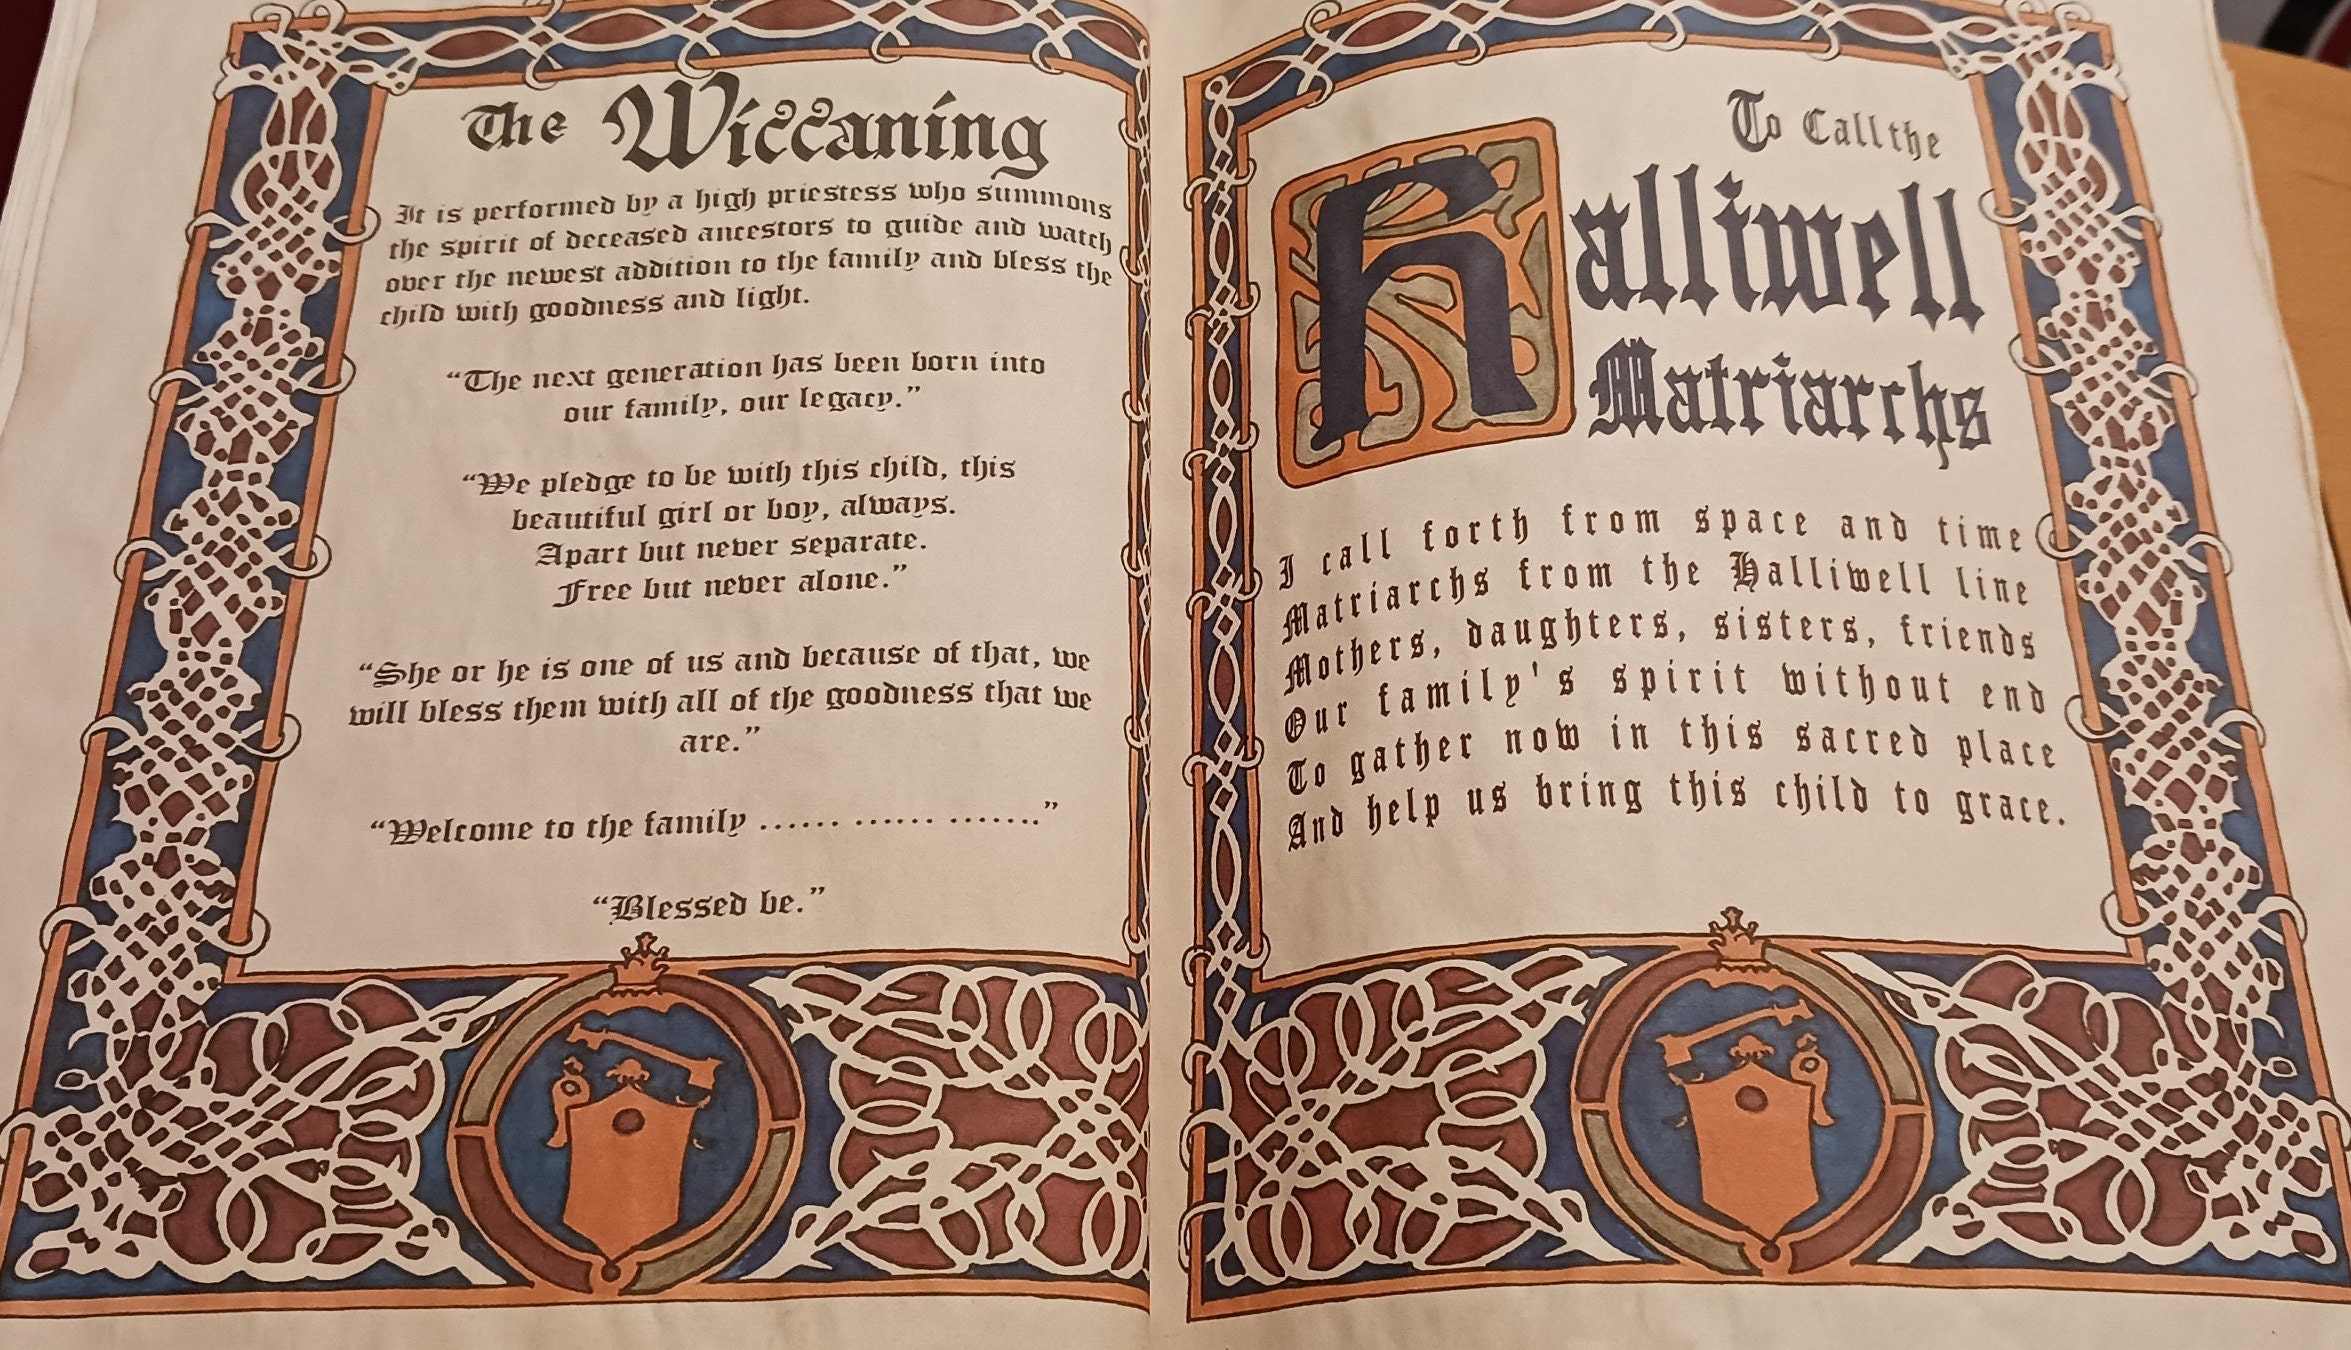 The Wiccaning
It is performed by a high priestess who summons
the spirit of deceased ancestors to guide and watch
over the newest addition to the family and bless the
child with goodness and light.
“The next generation has been born into
our family, our legacy.”
“We pledge to be with this child, this
beautiful girl or boy, always.
Apart but never separate.
Free but never alone.”
“She or he is one of us and because of that, we
will bless them with all of the goodness that we
are.”
“Welcome to the family ...... ...... .......”
“Blessed be.”
To Call the
Halliwell
Matriarchs
I call forth from space and time
Matriarchs from the Halliwell line
Mothers, daughters, sisters, friends
Our family's spirit without end
To gather now in this sacred place
And help us bring this child to grace.